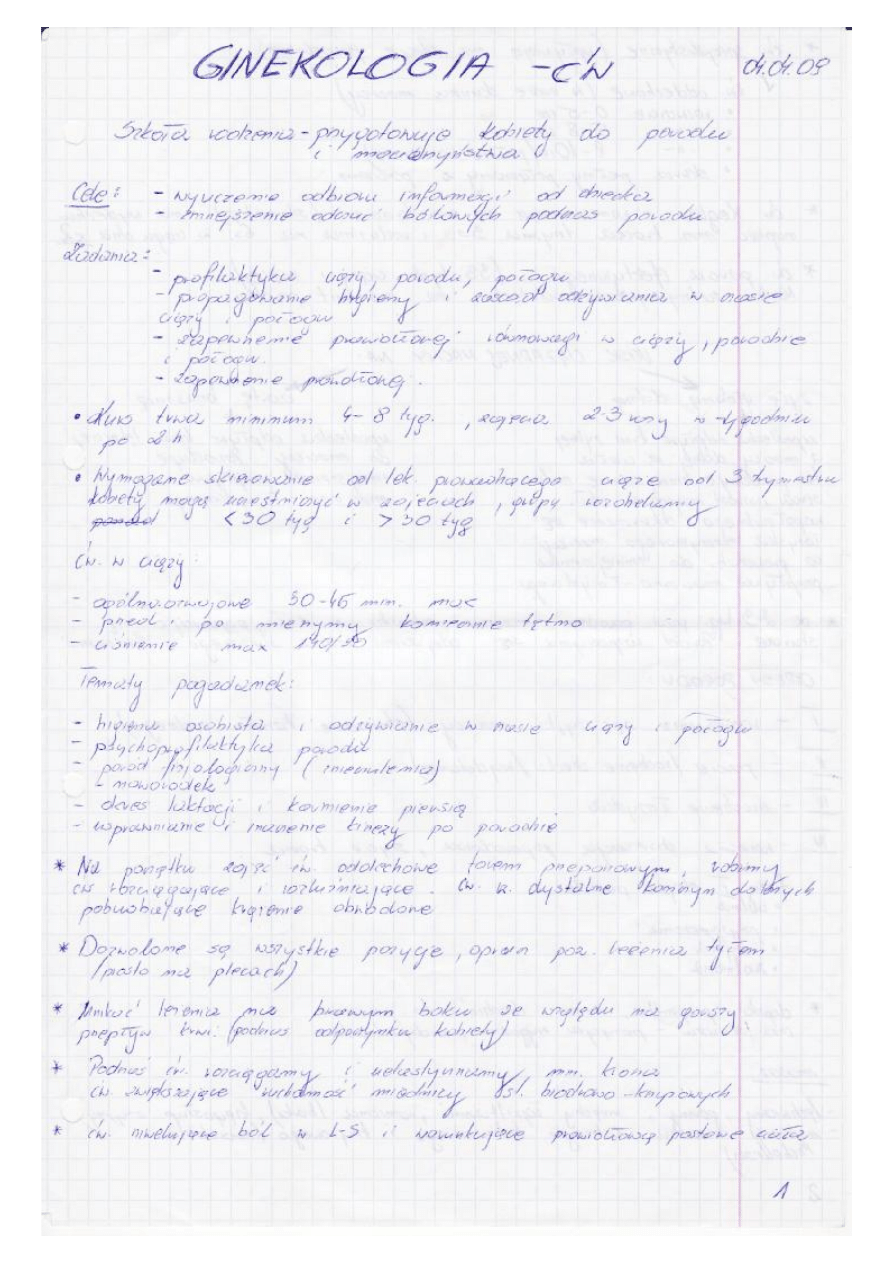 GINEKOLOGIA - ćw 04.04.09
Szkoła rodzenia - przygotowuje kobiety do porodu
i macierzyństwa
Cele: - wyuczenie odbioru informacji od dziecka
- mniejszenie odczuć bólowych podczas porodu
Zadania:
- profilaktyka ciąży, porodu, połogu
- propagowanie higieny i zasad odżywiania w czasie
ciąży i połogu
- zapewnienie prawidłowej równowagi w ciąży, porodzie
i połogu.
- zapewnienie prawidłowej.
• Kurs trwa minimum 4-8 tyg., zajęcia 2-3 razy w tygodniu
po 2 h
• Wymagane skierowanie od lek. prowadzącego ciążę od 3 trymestru
kobiety mogą uczestniczyć w zajęciach, grupy rozdzielamy
<30 tyg i >30 tyg
ćw. w ciąży:
- ogólnorozwojowe 30-45 min. max
- przed i po mierzymy koniecznie tętno
- ciśnienie max 140/90
Tematy pogadanek:
- higiena osobista i odżywianie w czasie ciąży i połogu
- psychoprofilaktyka porodu
- poród fizjologiczny (znieczulenia)
- noworodek
- okres laktacji i karmienie piersią
- usprawnianie i znaczenie kinezy po porodzie
* Na początku zajęć ćw. oddechowe torem przeponowym, robimy
ćw rozciągające i rozluźniające. ćw. cz. dystalne kończyn dolnych
pobudzające krążenie obwodowe
* Dozwolone są wszystkie pozycje, oprócz poz. leżenia tyłem
(płasko na plecach)
* Unikać leżenia na prawym boku ze względu na gorszy
przepływ krwi (podczas odpoczynku kobiety)
* Podczas ćw. rozciągamy i uelastyczniamy mm. krocza
ćw. zwiększające ruchomość miednicy, st. biodrowo-krzyżowych
* ćw. niwelujące ból w L-S i warunkujące prawidłową postawę ciała
1